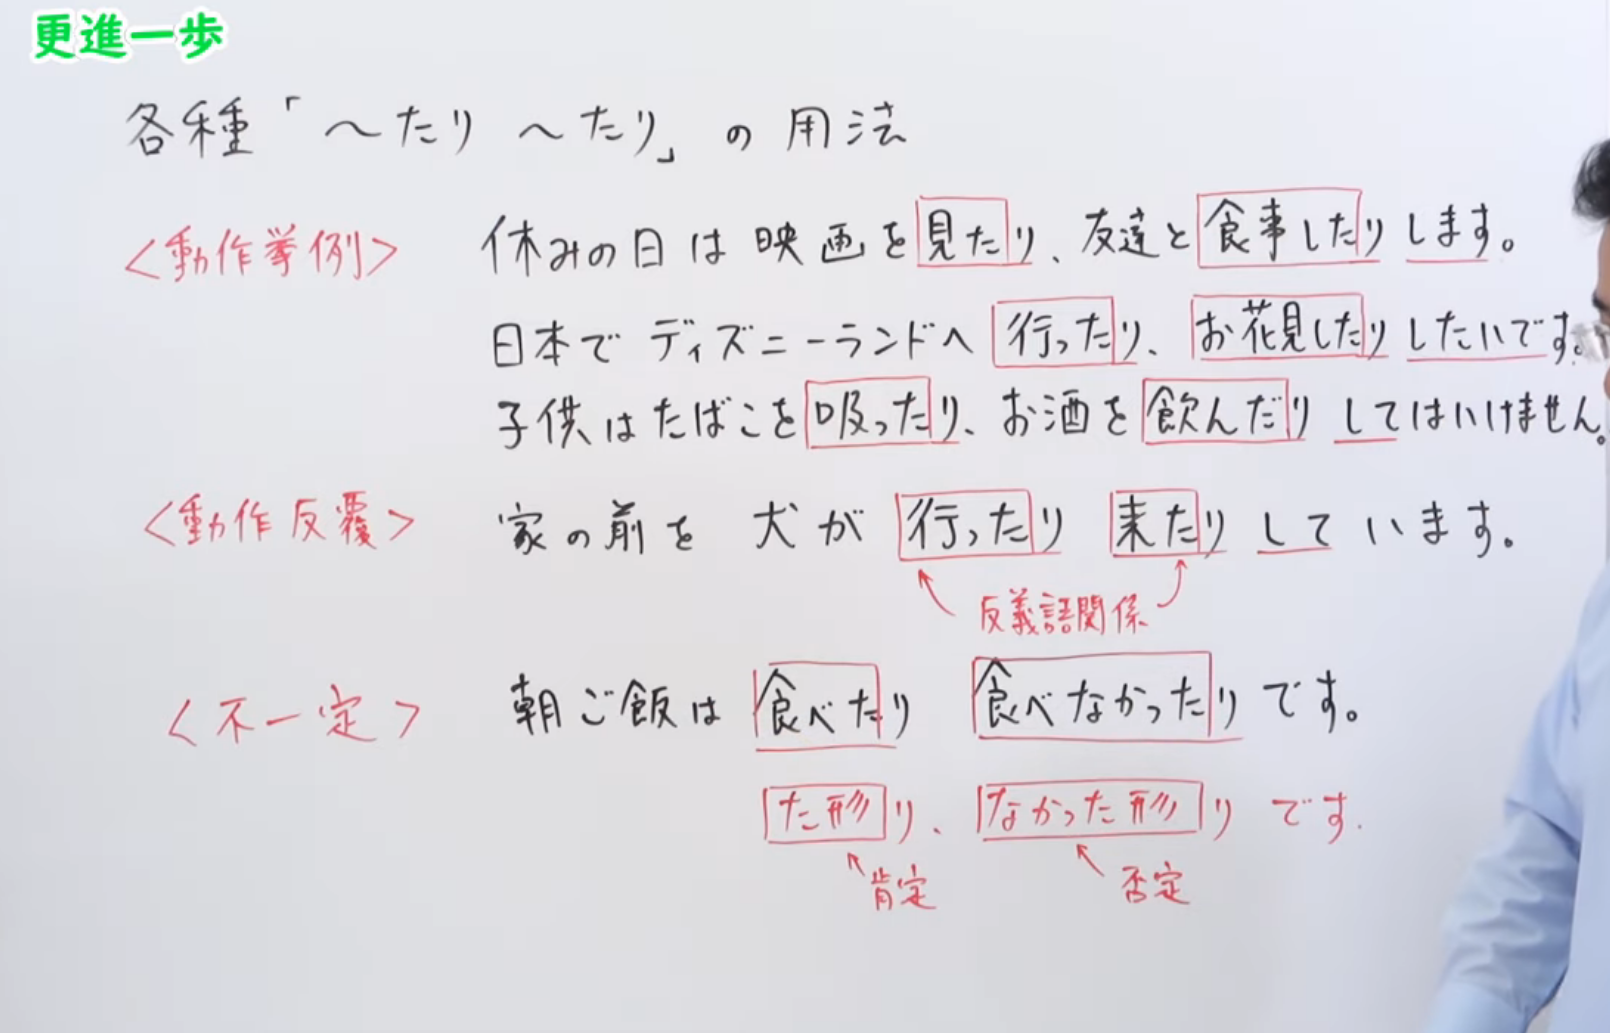 更進一歩
各種「〜たり 〜たり」の用法
<動作挙例> 休みの日は映画を見たり、友達と食事したりします。
日本でディズニーランドへ行ったり、お花見したりしたいです。
子供はたばこを吸ったり、お酒を飲んだりしてはいけません。
<動作反覆> 家の前を犬が行ったり来たりしています。
反義語関係
<不一定> 朝ご飯は食べたり食べなかったりです。
た形り、なかった形りです.
肯定 否定